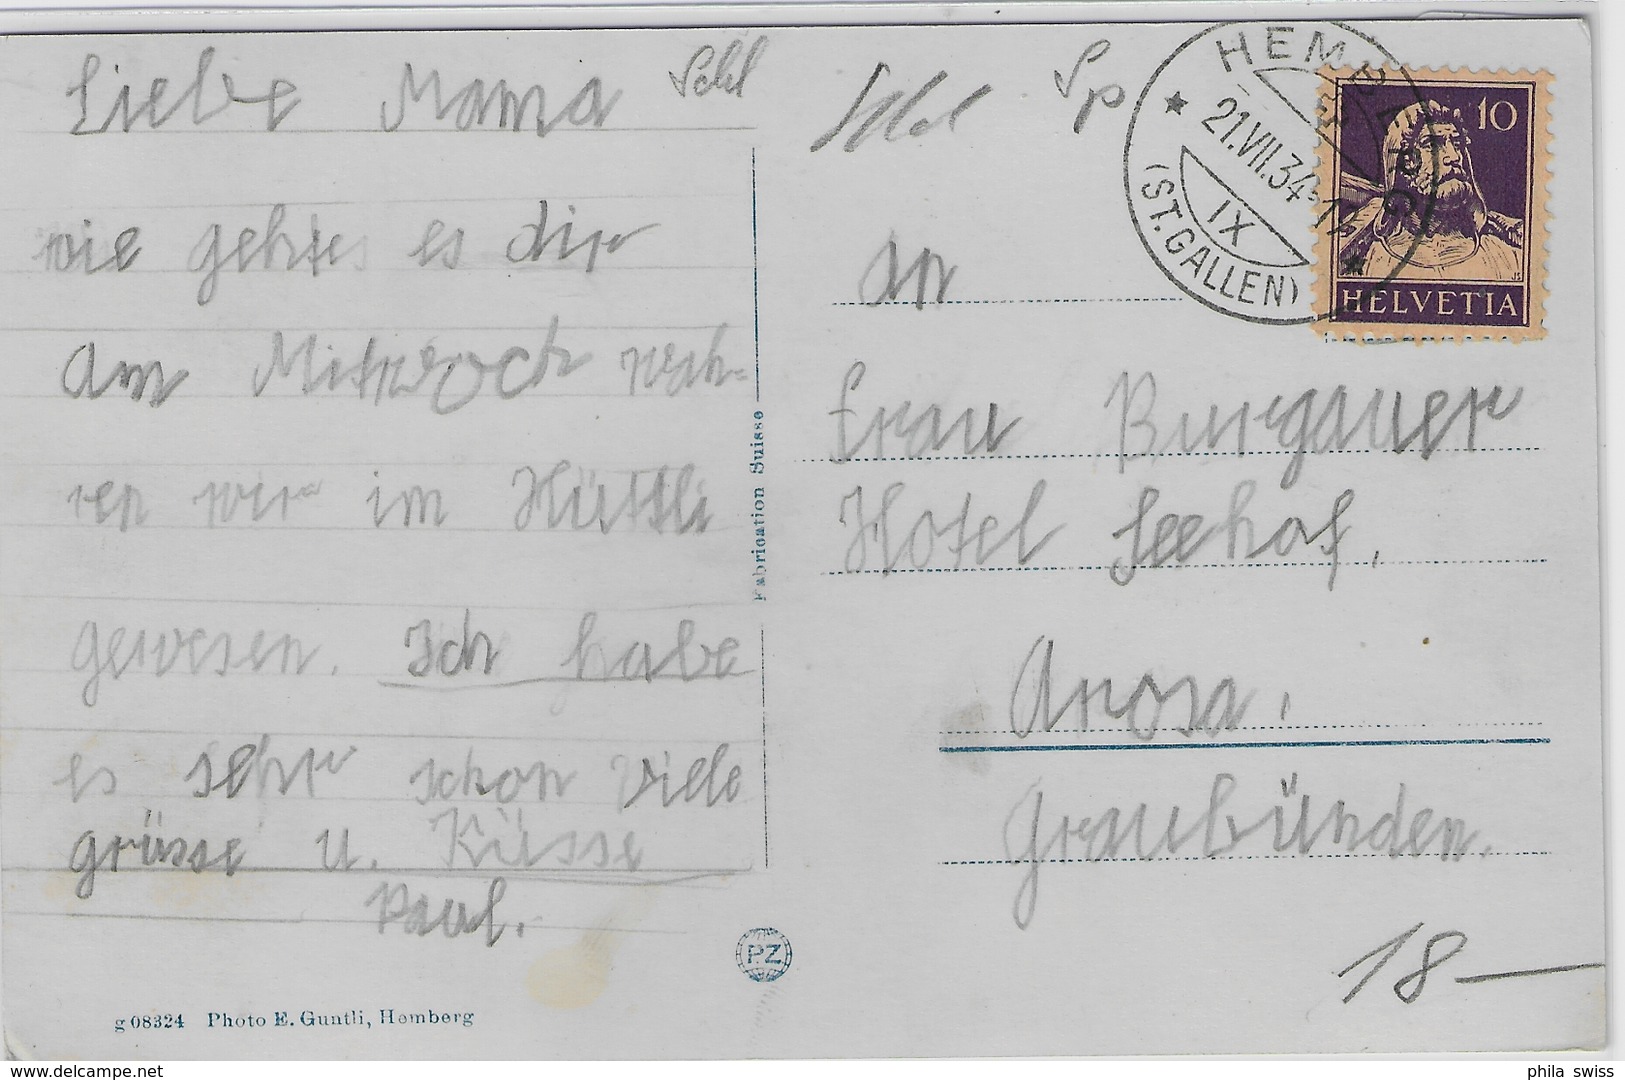 Liebe Mama
wie gehts es dir
am Mitwoch wah-
ren wir im Hüttli
gewesen. Ich habe
es sehr schon viele
grüsse u. Küsse
Paul.
g 08324 Photo E. Guntli, Hemberg
Fabrication Suisse
PZ
Sp
HEMBERG
21.VII.34-11
IX
(ST.GALLEN)
10
HELVETIA
an
frau Burgauer
Hotel Seehof,
Arosa,
Graubünden.
18—
phila swiss
www.delcampe.net